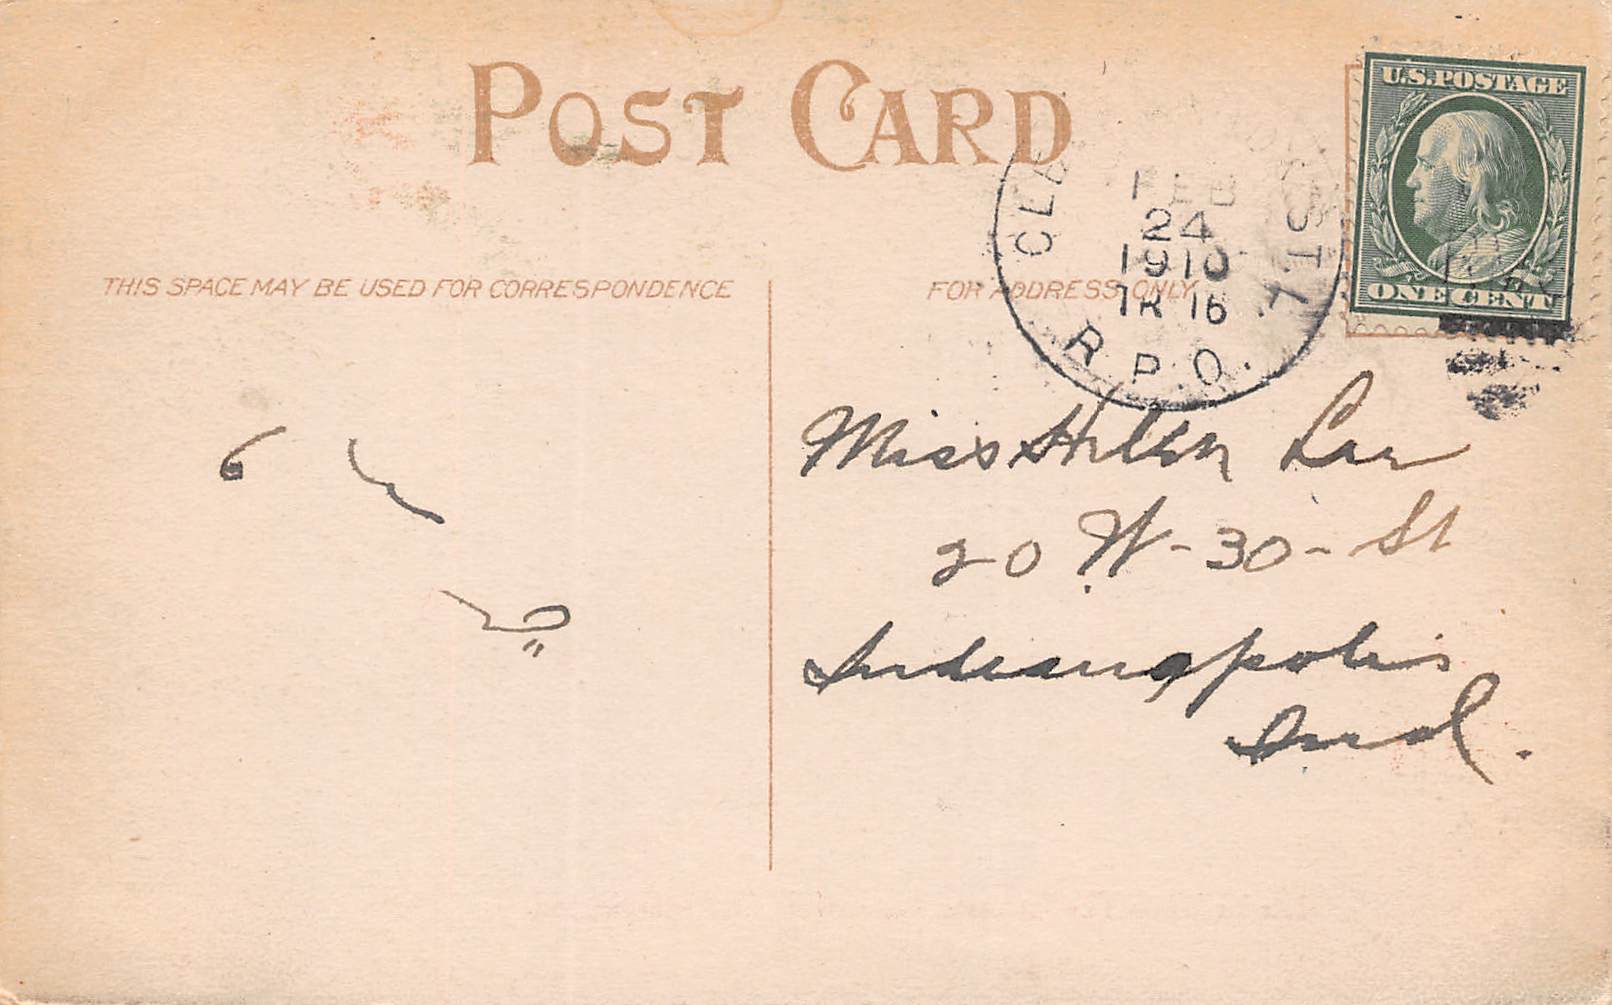 POST CARD
U.S. POSTAGE
ONE CENT
FEB
24
1910
TR 16
R.P.O.
ST. L
THIS SPACE MAY BE USED FOR CORRESPONDENCE
FOR ADDRESS ONLY
Miss Helen
20 W-30-St
Indianapolis
Ind.